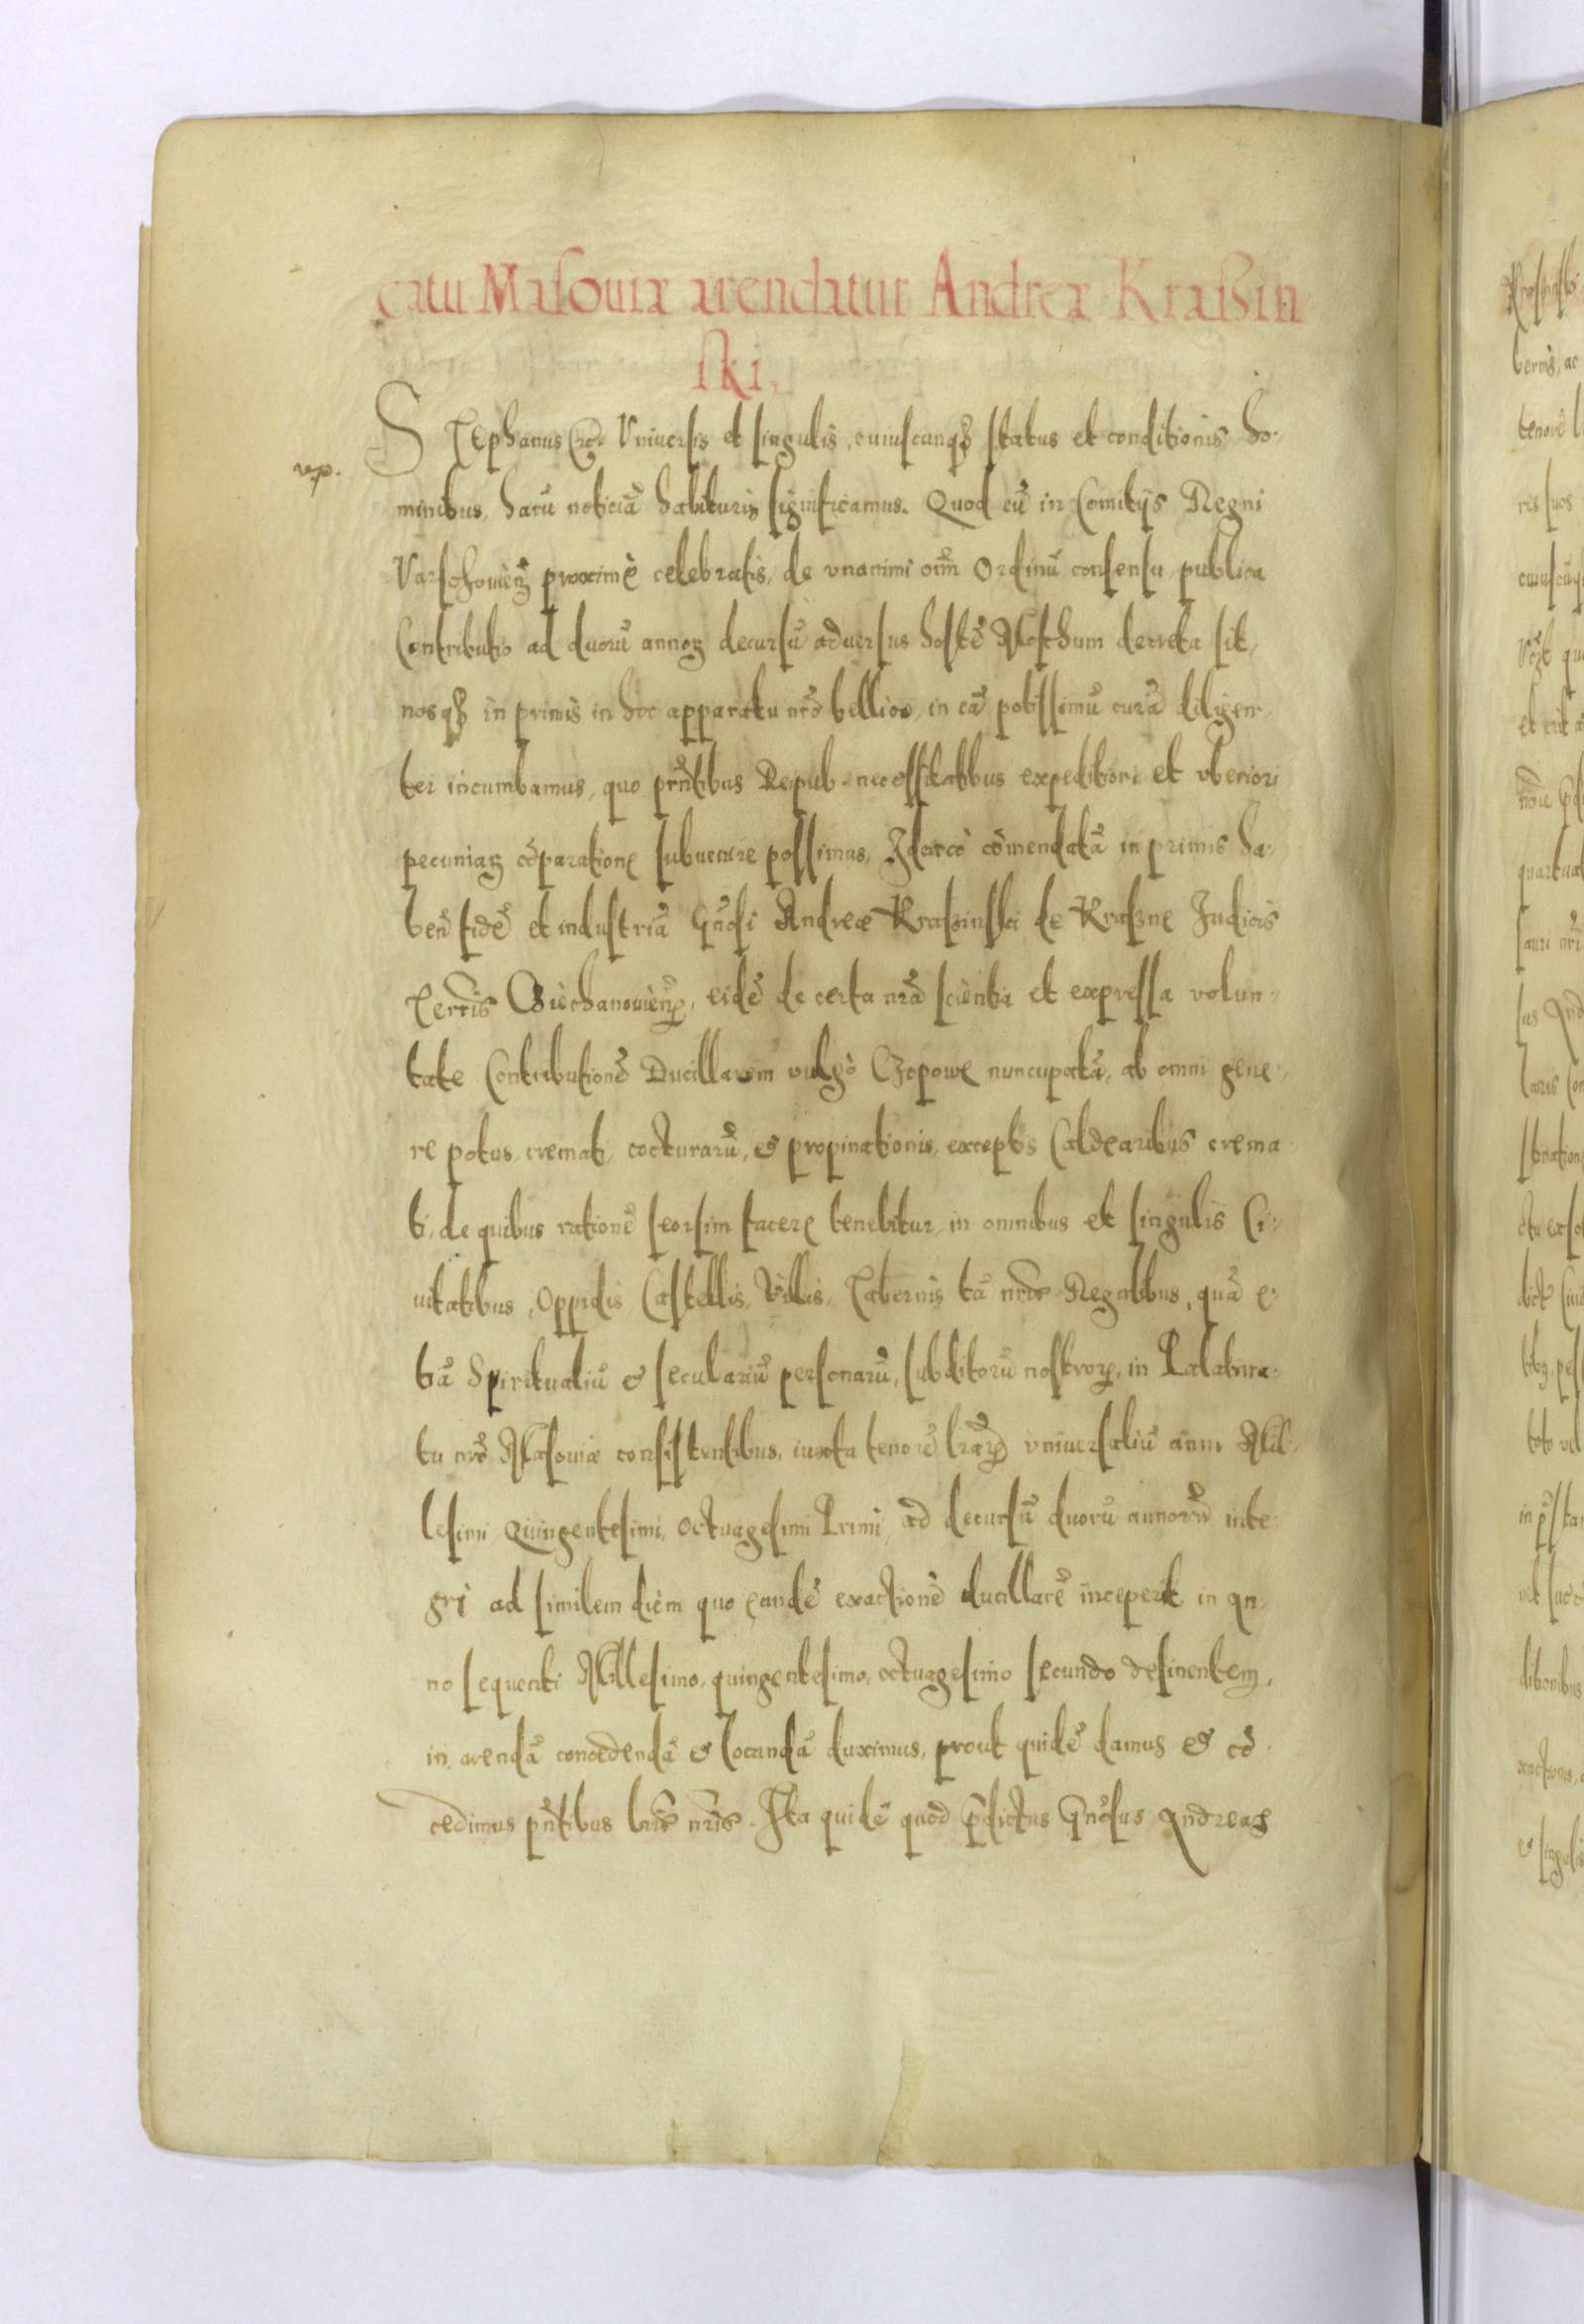 catu Masouiæ arendatur Andreæ Kraßin
ski.
STEphanus etc. Vniuersis et singulis, cuiuscunqȝ status et conditionis ho-
vp.
minibus, harū noticiā habituris significamus. Quod cū in Comitijs Regni
Varschouieñ proxime celebratis, de vnanimi oīm Ordinū consensu publica
Contributio ad duorū annoꝝ decursū aduersus hostē Moschum decreta sit,
nosqȝ in primis in hoc apparatu nrō bellico, in eā potissimū curā diligen-
ter incumbamus, quo prn̄tibus Reipub. necessitatibus expeditiori et vberiori
pecuniaꝝ cōparatione subuenire possimus, Idcirco cōmendatā in primis ha-
ben̄ fidē et industriā Gn̄osi Andreæ Kraszinski de Kraszne Judicis
Terrīs Cziechanouien̄, eidē de certa nrā scientia et expressa volun-
tate Contributionē Ducillarem vulgo Czopowe nuncupatā, ab omni gene-
re potus, cremati, cocturarū, et propinationis, exceptis Caldearibus crema
ti, de quibus rationē seorsim facere tenebitur, in omnibus et singulis Ci-
uitatibus, Oppidis, Castellis, Villis, Tabernis tā nrīs Regalibus, quā e-
tiā Spiritualiū et seculariū personarū, subditorū nostroꝝ, in Palatina-
tu nrō Masouiæ consistentibus, iuxta tenorē lrāꝝ vniuersaliū anni Mil-
lesimi Quingentesimi, Octuagesimi Primi, ad decursū duorū annorū inte-
gri ad similem diem quo eandē exactionē ducillarē inceperit, in An-
no sequenti Millesimo, quingentesimo, octuagesimo secundo desinentem,
in arendā concedendā et locandā duximus, prout quidē damus et cō-
cedimus pn̄tibus lrīs nrīs. Ita quidē quod p̄dictus Gn̄osus Andreas